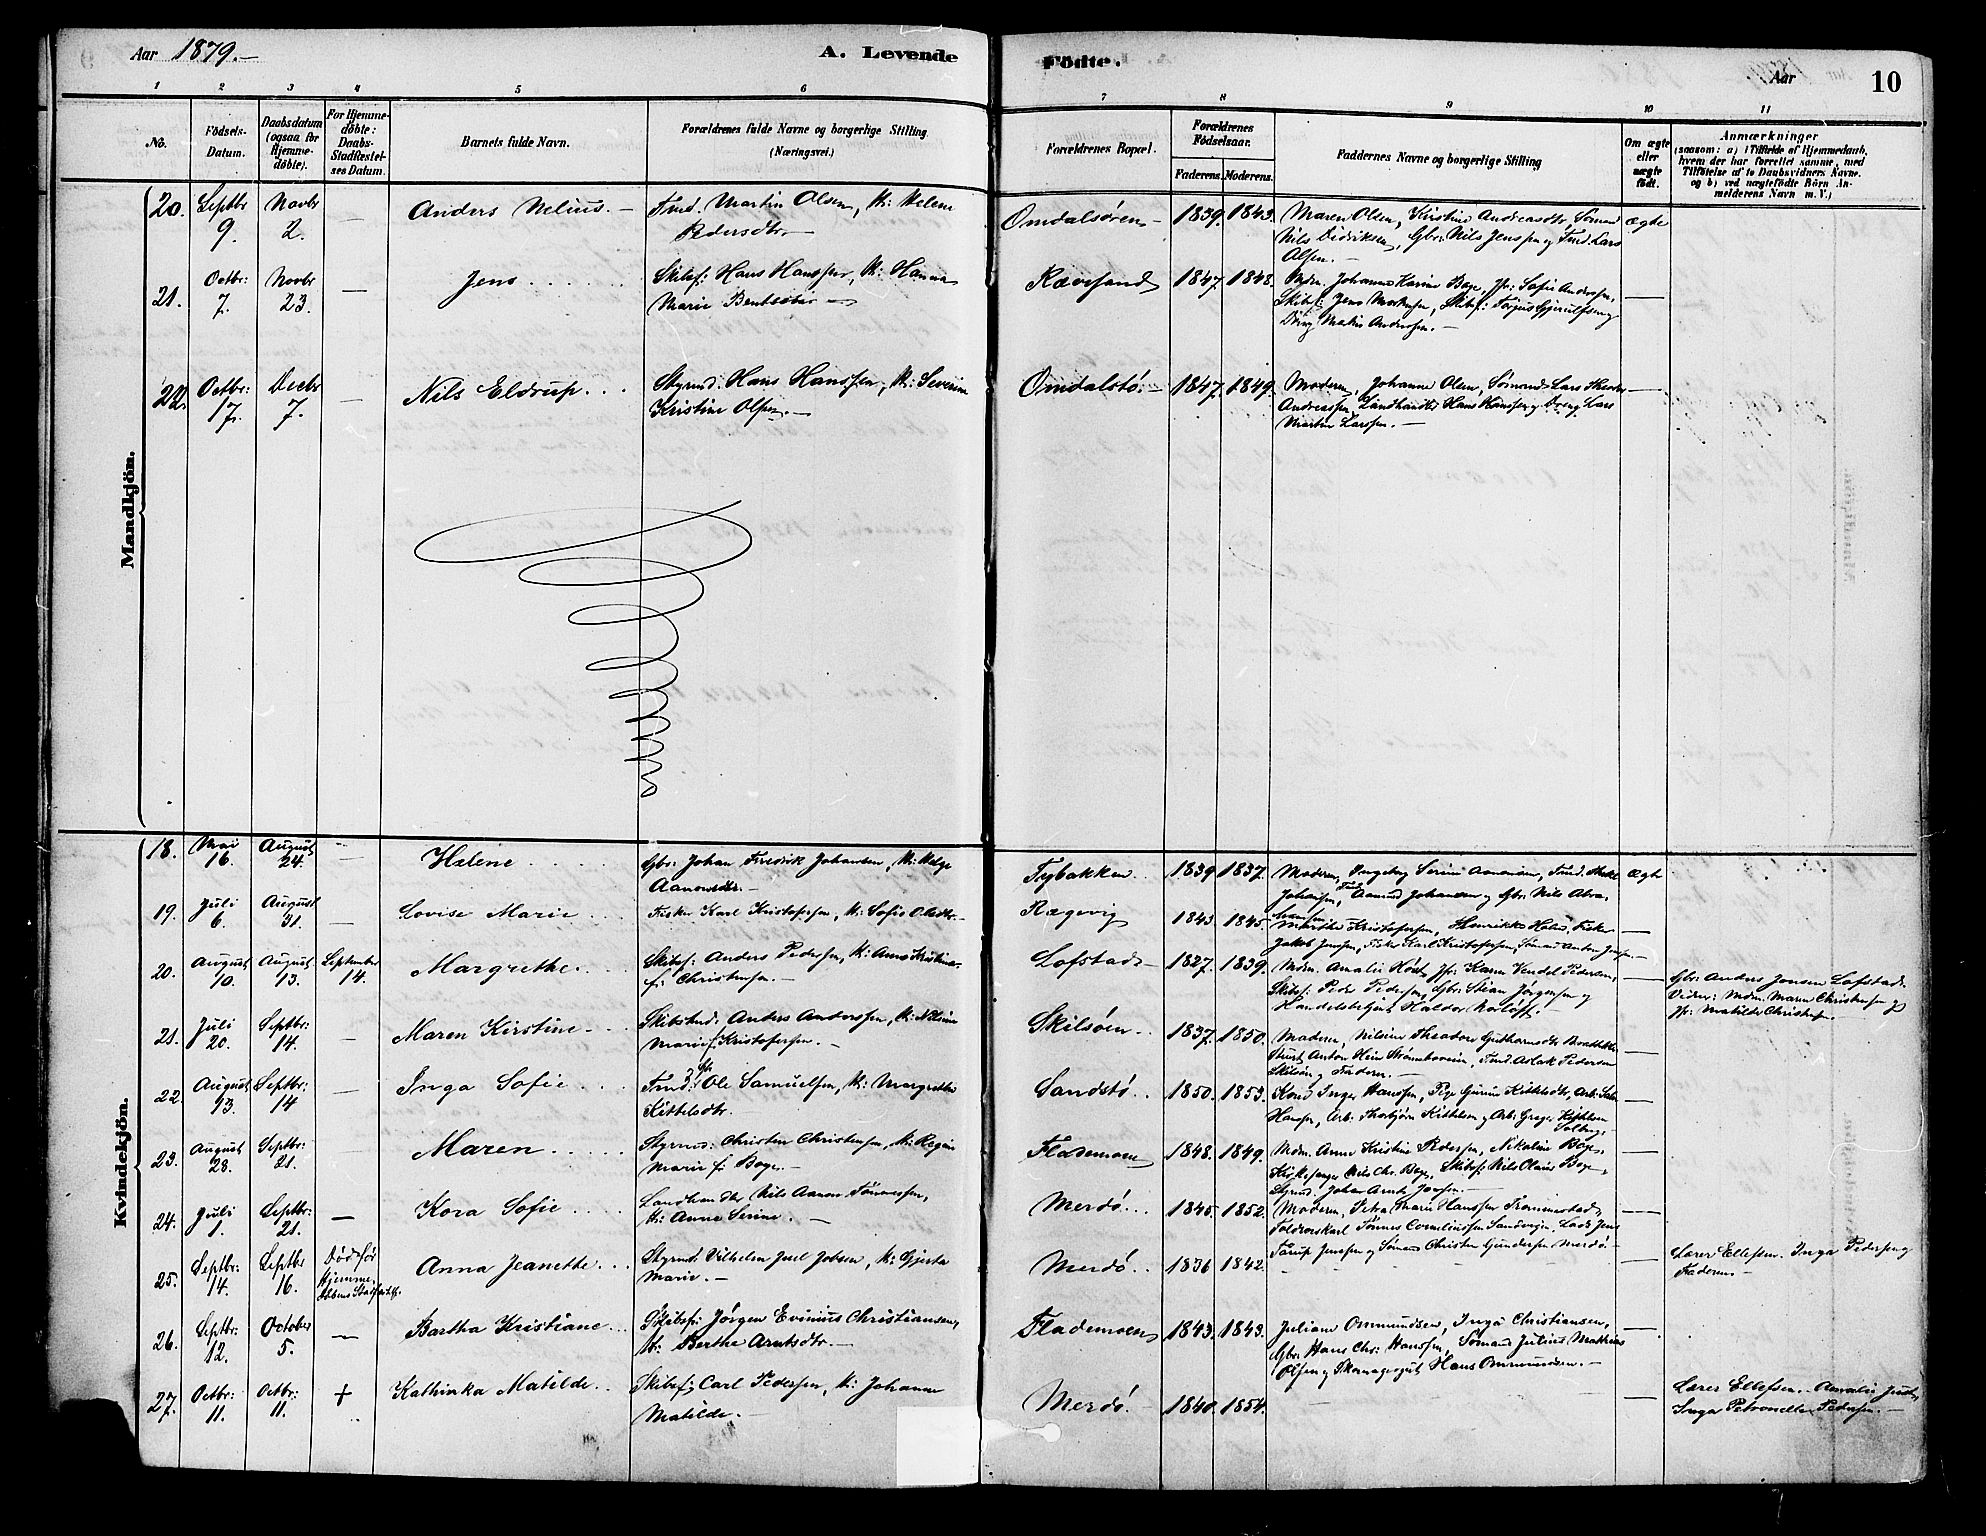 Aar 1879.-
A. Levende
Födte.
Aar
10
1 2 3 4 5 6 7 8 9 10 11
No.
Födsels-Datum.
Daabsdatum (ogsaa for Hjemme-döbte).
For Hjemme-döbte: Daabs-Stadfæstel-ses Datum.
Barnets fulde Navn.
Forældrenes fulde Navne og borgerlige Stilling
(Næringsvei.)
Forældrenes Bopæl.
Forældrenes Födselsaar.
Faderens. Moderens.
Faddernes Navne og borgerlige Stilling
Om ægte eller uægte födt.
Anmærkninger
(saasom: a) i Tilfælde af Hjemmedaab, hvem der har forrettet samme, med Tilföielse af to Daabsvidners Navne, og b) ved uægtefödte Börn Anmelderens Navn m. V.)
Mandkjön.
20. Septbr 9. Novbr 2. — Anders Nelius. - Tmd. Martin Olsen, K: Helene
Pedersdtr. Omdalsøren - 1839. 1843. Maren Olsen, Kirstine Andreasdtr, Sømand ægte
Nils Didriksen, Gbr: Nils Jenssen og Tmd. Lars
Olsen. -
21. Octbr: 7. Novbr 23. — Jens Skibsf: Hans Hanssen, K: Hanna
Marie Bentsdtr - Rævesand 1847. 1848. Mdm. Johanne Karine Boye, Jfr: Sofie Anderssen,
Skibsf: Jens Mortensen, Skibsf: Torjus Gjeruldsen og
Dreng Matias Anderssen. -
22. Octbr: 17. Decbr 7. — Nils Eldrup. Styrmd. Hans Hanssen, K: Severine
Kristine Olsen. - Omdalstø. - 1847. 1849. Moderen, Johanne Olsen, Sømand Lars Theodor
Andreassen, Landhandler Hans Hanssen og Dreng Lars
Martin Larssen. -
Kvindekjön.
18. Mai 16. August 24. — Helene Gbr: Johan Fredrik Johansen, K: Helge
Aanonsdtr. - Tybakken 1839 1837. Moderen, Ingeborg Serine Aanonsen, ægte
Johansen, Aamund Johansen og Gbr. Nils Abra-
hamsen
19. Juli 6. August 31. Lovise Marie Fisker Karl Kristofersen, K: Sofie Olsdtr. - Rægevig 1843 1845. Marthe Kristofersen, Henrikke Fisker
Jakob Jenssen, Fisker Karl Kristofersen, Sømd Anton Jenssen. -
20. August 10. August 13. September 14. Margrethe Skibsf: Anders Pedersen, K: Anne Kristine
f: Christensen. - Lofstad - 1827. 1839. Mdm. Amalie Jfr: Karen Vendel Pedersen,
Skibsf: Peder Pedersen, Gbr: Stian Jørgensen og
Handelsbetjent Haldor Gbr: Anders Jensen Lofstad
Vidner: Mdm. Maren Christensen og
Jfr: Matilde Christensen. -
21. Juli 20. Septbr: 14. — Maren Kirstine Skibstmd: Anders Anderssen, K: Nilsine
Marie f: Kristofersen. - Skilsøen 1837. 1850. Moderen, Nilsine Theodore
Anton Hein Tmd. Aslak Pedersen
Skilsø og Faderen. -
22. August 13. Septbr: 14 — Inga Sofie Tmd: Ole Samuelsen, K: Margrethe
Kittelsdtr. Sandstø 1850. 1853. Kone Inger Hanssen, Pige Gunine Kittelsdtr, Arb:
Hanssen, Arb: Thorbjørn Kittelsen og Arb: Greger Kittelsen
Solberg. -
23. August 28. Septbr: 21. — Maren Styrmd: Christen Christensen, K: Regine
Marie f: Boye. - Flademoen 1848. 1849. Mdm. Anne Kristine Pedersen, Nikoline Boye,
Kirkesanger Nils Chr. Boye, Skibsf: Nils Olaus Boye,
Styrmd. Johan Arndt Jensen. -
24. Juli 1. Septbr: 21. — Kora Sofie Landhandler Nils Aanon Tønnessen,
K: Anne Serine. - Merdø 1845. 1852. Moderen, Petra Marie Hanssen Trommestad,
Toldroerskarl Tønnes Corneliussen Sandvigen, Lods Jens
Taarup Jenssen og Sømand Christen Gundersen Merdø. -
25. Septbr: 14. Septbr 16. Død før Hjemme-daabens Stadfæstelse. Anna Jeanette Styrmd. Vilhelm Juel Jobsen, K: Gjertine
Marie. - Merdø. 1836 1842. - Lærer Ellefsen. Inga Pedersen og
Faderen -
26. Septbr: 12. October 5. — Bartha Kristiane Skibsf: Jørgen Evinius Christiansen,
K: Berthe Arntsdtr. - Flademoen 1843. 1843. Juliane Ommundsen, Inga Christiansen,
Gbr: Hans Chr: Hanssen, Sømand Julius Matthias
Olsen og Skomagergut Hans Ommundsen. -
27. Octbr: 11. Octbr: 11. + Kathinka Matilde Skibsf: Carl Pedersen, K: Johanne
Matilde. - Merdø. 1840. 1854. - Lærer Ellefsen. Amalie Juel,
Inga Petronelle Pedersen. -